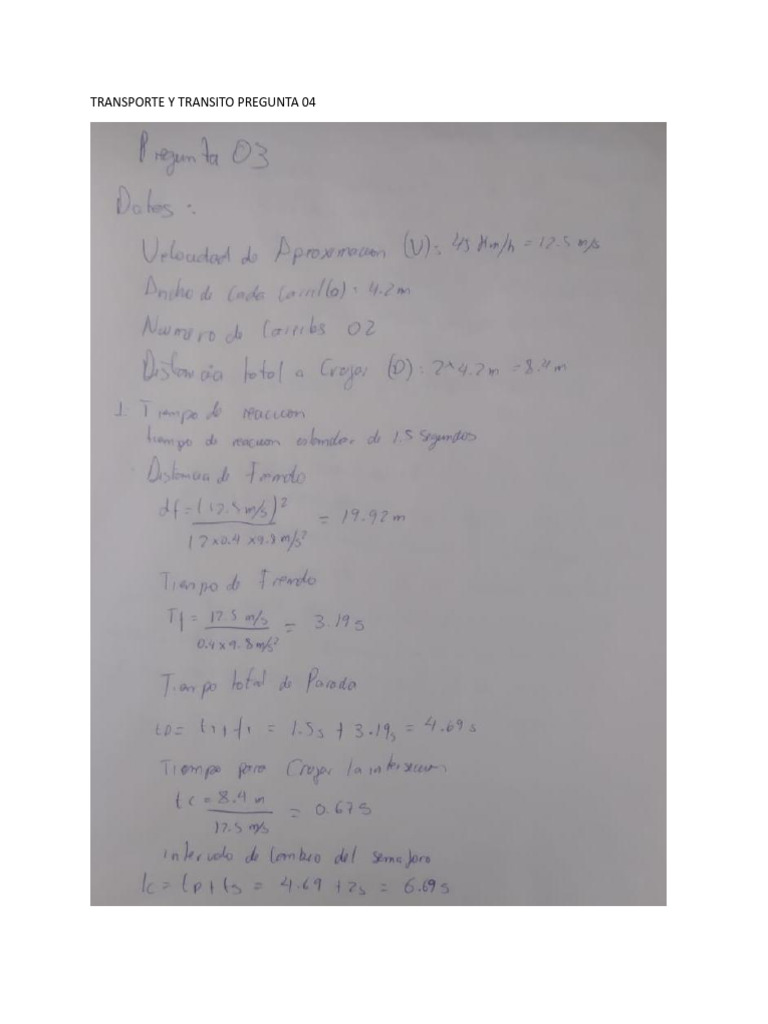 TRANSPORTE Y TRANSITO PREGUNTA 04
Pregunta 03
Datos :
Velocidad de Aproximacion (V): 45 Km/h = 12.5 m/s
Ancho de cada carril(a) = 4.2 m
Numero de Carriles 02
Distancia total a Cruzar (D): 2*4.2m = 8.4m
1. Tiempo de reaccion
tiempo de reaccion estandar de 1.5 segundos
Distancia de Frenado
df = (12.5 m/s)²
= 19.92 m
12 x 0.4 x 9.8 m/s²
Tiempo de Frenado
Tf = 12.5 m/s
= 3.19 s
0.4 x 9.8 m/s²
Tiempo total de Parada
= 1.5s + 3.19s = 4.69 s
Tiempo para Cruzar la interseccion
tc = 8.4 m
= 0.67 s
12.5 m/s
intervalo de Cambio del semaforo
Ic = tp + ts = 4.69 + 2s = 6.69 s